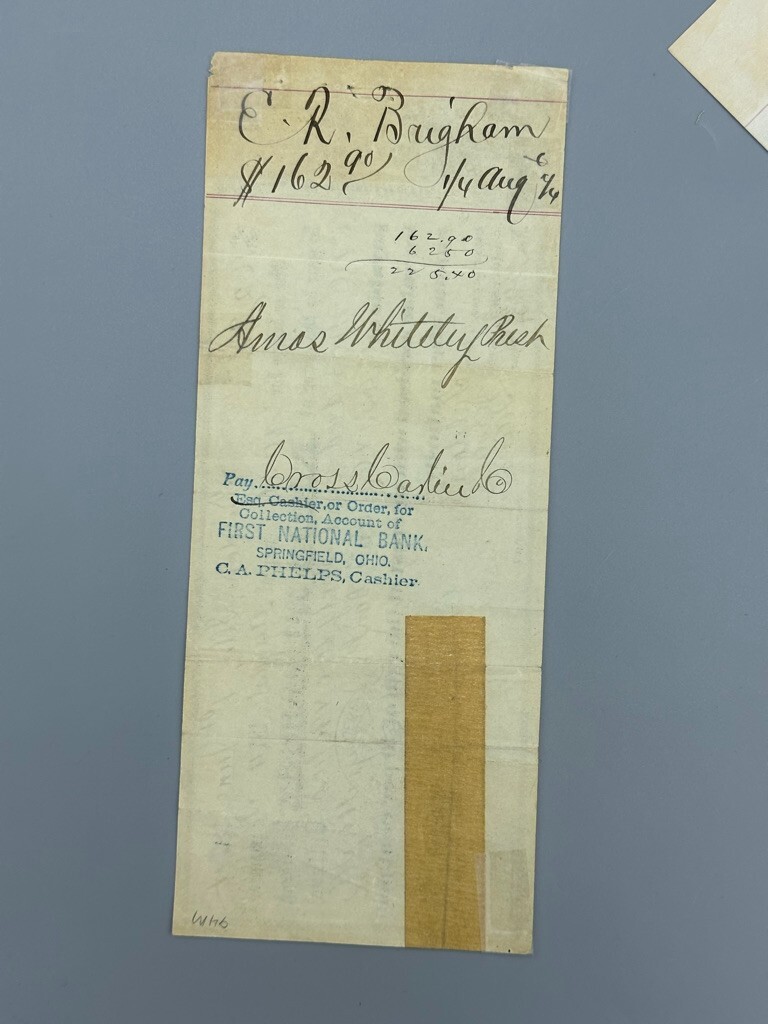 E. R. Brigham
$162 90/ 1/4 Aug 6/4
162.90
6250
225.40
Amos Whiteley Prest
Pay Cross Carlin Co
Esq. Cashier, or Order, for
Collection, Account of
FIRST NATIONAL BANK,
SPRINGFIELD, OHIO.
C. A. PHELPS, Cashier.